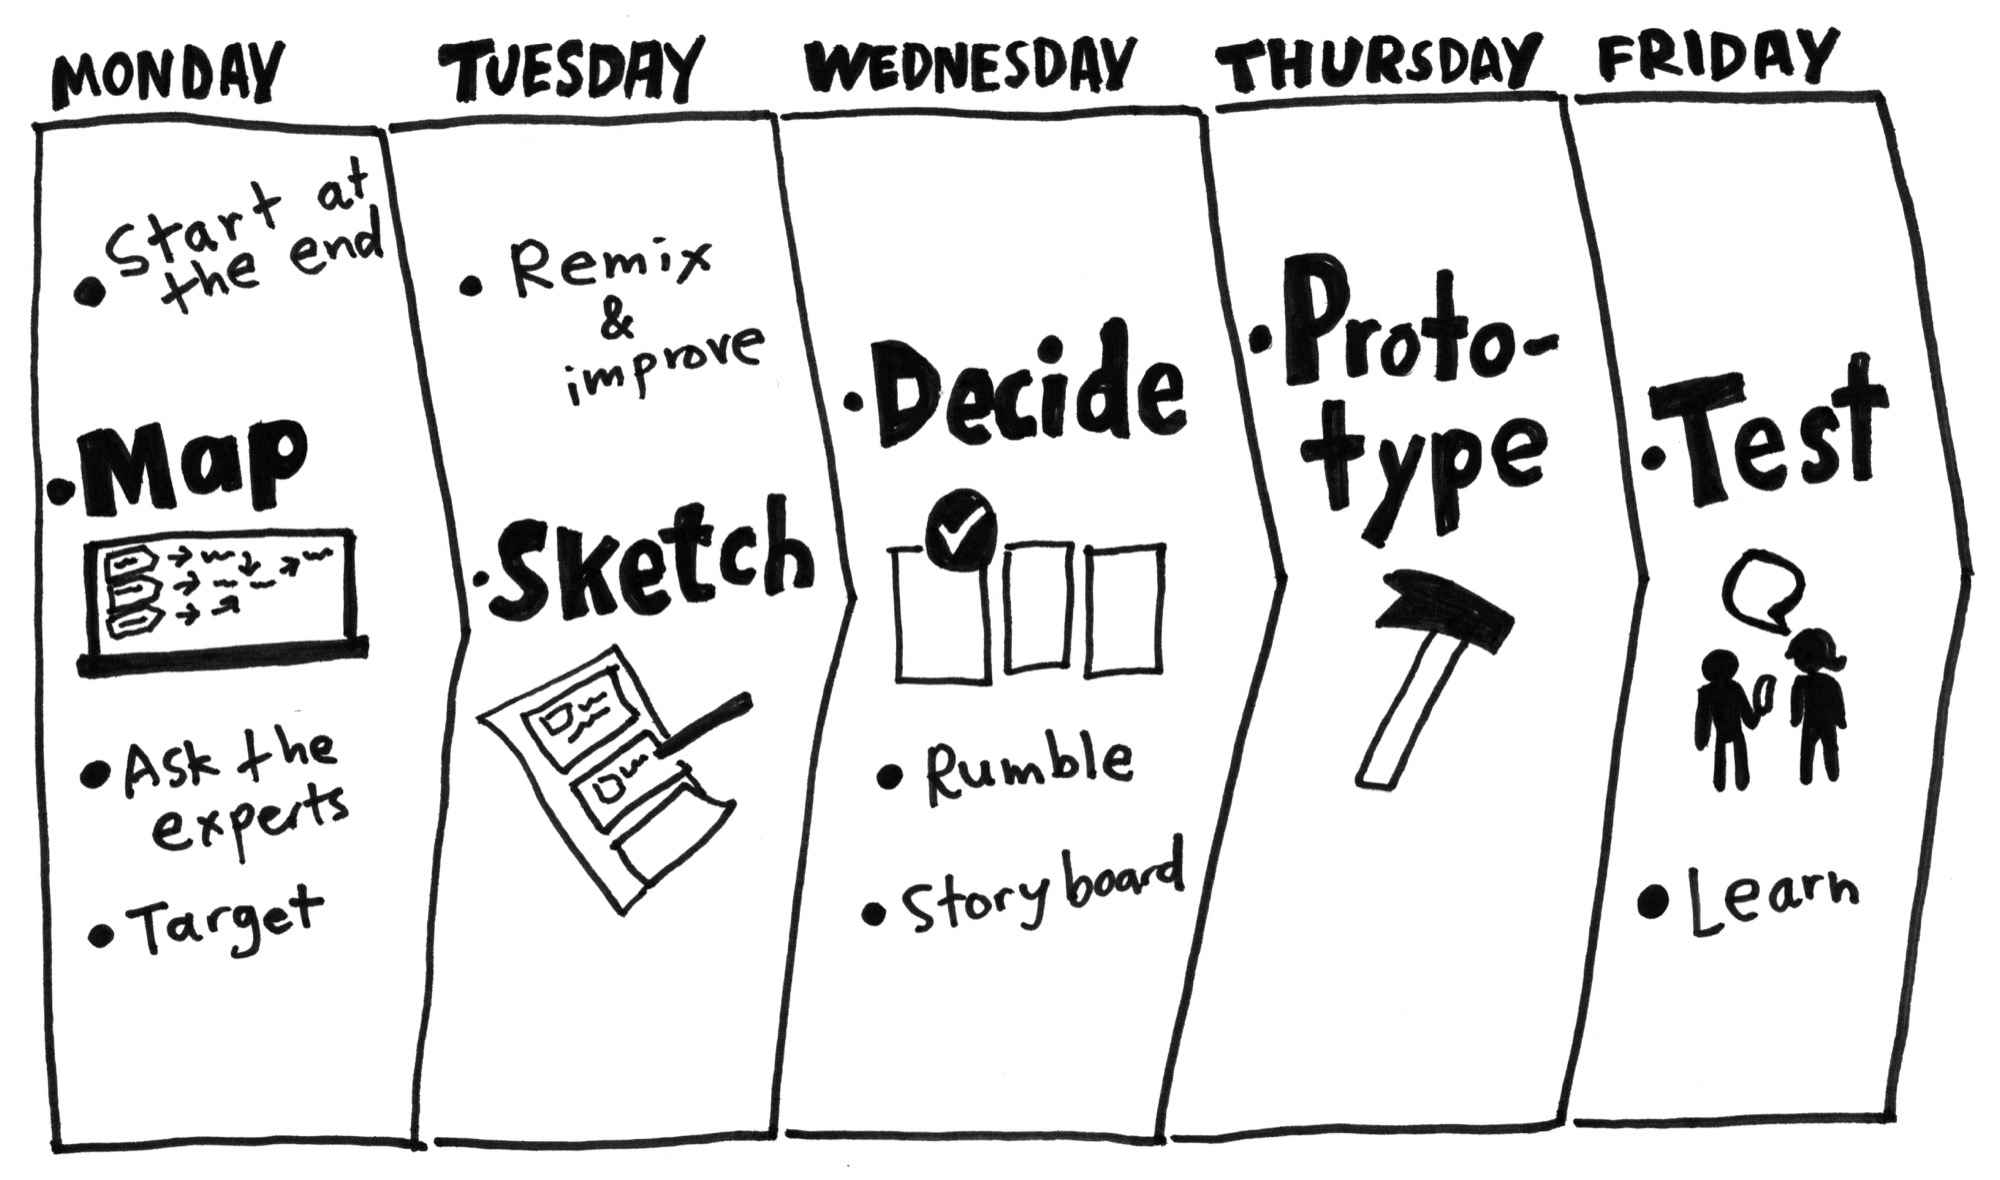 MONDAY
• Start at
the end
• Map
• Ask the
experts
• Target
TUESDAY
• Remix
&
improve
• Sketch
WEDNESDAY
• Decide
• Rumble
• Storyboard
THURSDAY
• Proto-
type
FRIDAY
• Test
• Learn